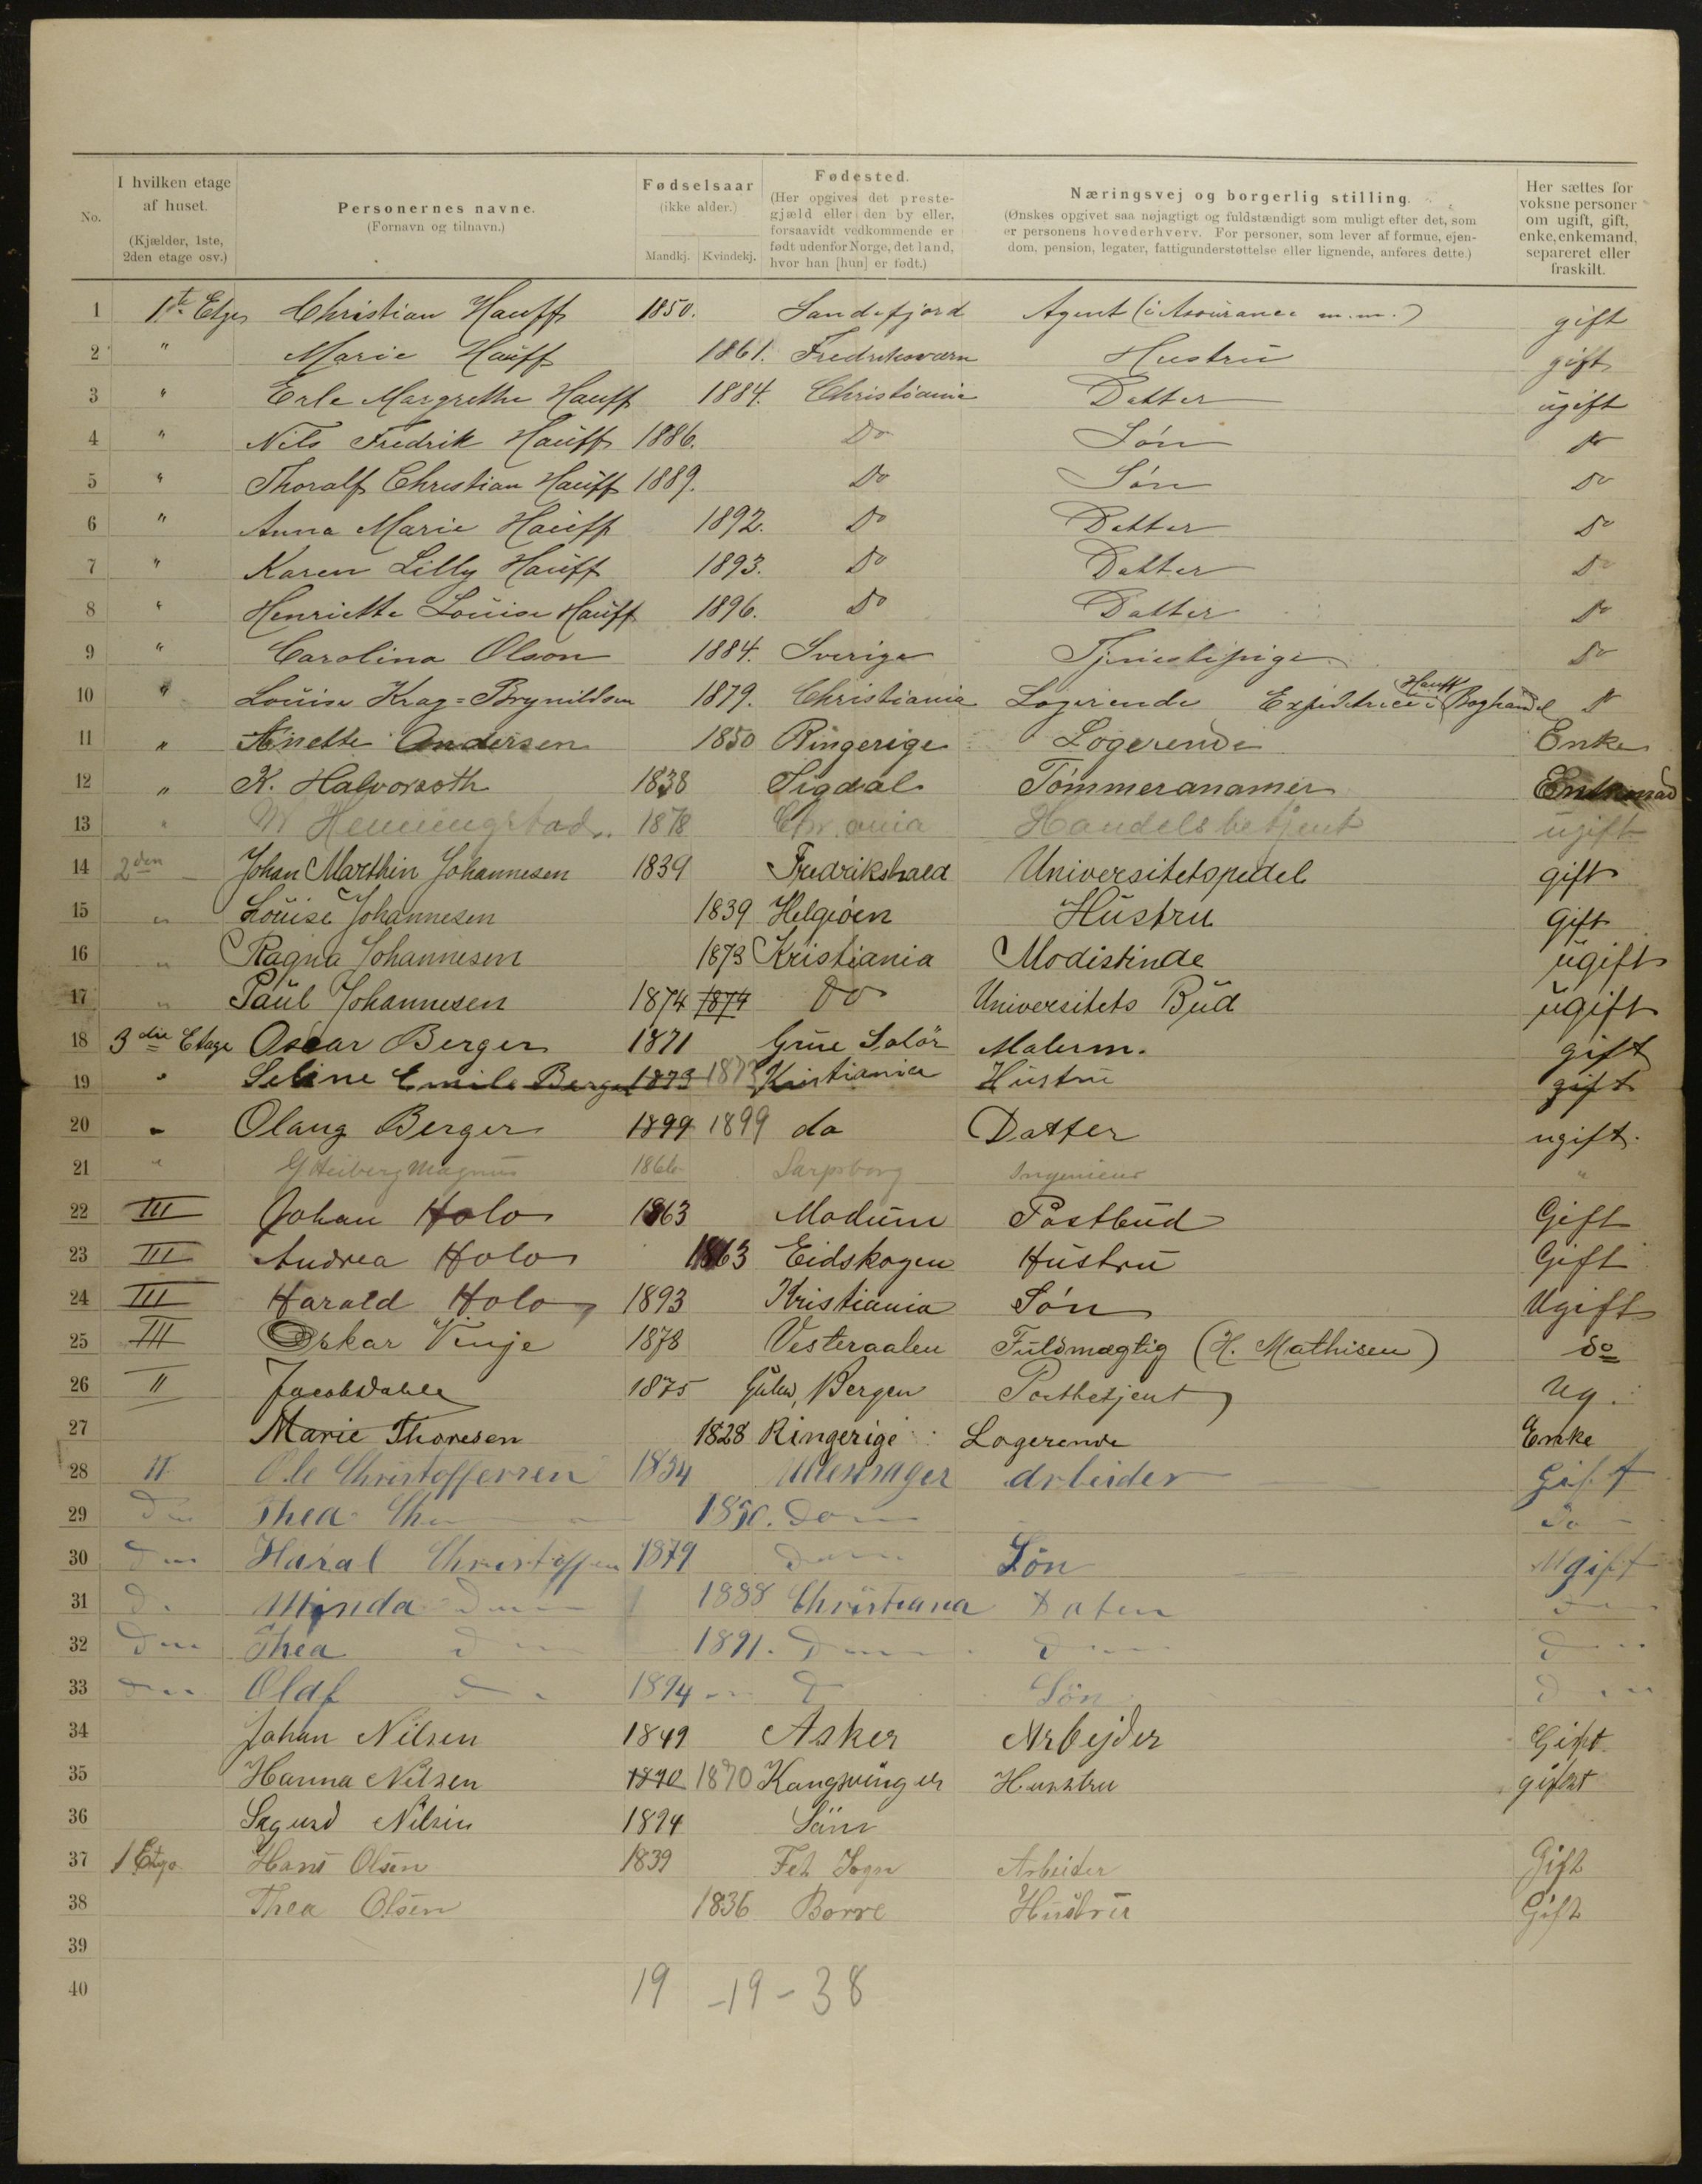 No.
I hvilken etage af huset. (Kjælder, 1ste, 2den etage osv.)
Personernes navne. (Fornavn og tilnavn.)
Fødselsaar (ikke alder.) Mandkj. Kvindekj.
Fødested. (Her opgives det prestegjæld eller den by eller, forsaavidt vedkommende er født udenfor Norge, det land, hvor han [hun] er født.)
Næringsvej og borgerlig stilling. (Ønskes opgivet saa nøjagtigt og fuldstændigt som muligt efter det, som er personens hovederhverv. For personer, som lever af formue, ejendom, pension, legater, fattigunderstøttelse eller lignende, anføres dette.)
Her sættes for voksne personer om ugift, gift, enke, enkemand, separeret eller fraskilt.
1 1ste Etge Christian Hauff 1850. Sandefjord Agent (i Assurance m.m.) gift
2 " Marie Hauff 1861. Fredriksværn Hustru gift
3 " Erle Margrethe Hauff 1884. Christiania Datter ugift
4 " Nils Fredrik Hauff 1886. Do Søn Do
5 " Thoralf Christian Hauff 1889. Do Søn Do
6 " Anna Marie Hauff 1892. Do Datter Do
7 " Karen Lilly Hauff 1893. Do Datter Do
8 " Henriette Louise Hauff 1896. Do Datter Do
9 " Carolina Olson 1884. Sverige Tjenestepige Do
10 " Louise Krag=Brynildsen 1879. Christiania Logerende Expeditrice i Hauff Boghandel Do
11 " Anette Andersen 1850 Ringerige Logerende Enke
12 " K. Halvorsoth 1838 Sigdal Tømmeranamer Enkemand
13 " Henningstad 1878 Chr.ania Handelsbetjent ugift
14 2den Johan Marthin Johannesen 1839 Fredrikshald Universitetspedel gift
15 " Louise Johannesen 1839 Helgøen Hustru gift
16 " Ragna Johannesen 1873 Kristiania Modistinde ugift
17 " Paul Johannesen 1874 1874 Do Universitets Bud ugift
18 3die Etage Oscar Berger 1871 Grue Solør Malerm. gift
19 " Seline Emile Berger 1873 1873 Kristiania Hustru gift
20 " Olaug Berger 1899 1899 do Datter ugift.
21 " G Heiberg Magnus 1866 Sarpsborg Ingeniør "
22 III Johan Holo 1863 Modum Postbud Gift
23 III Andrea Holo 1863 Eidskogen Hustru Gift
24 III Harald Holo 1893 Kristiania Søn Ugift
25 III Oskar Vinje 1878 Vesteraalen Fuldmægtig (H. Mathisen) do
26 II Jacob Dahle 1875 Bergen Postbetjent Ug.
27 Marie Thoresen 1828 Ringerige Logerende Enke
28 II Ole Christoffersen 1834 Ullensager Arbeider Gift
29 Do Thea Chr 1850. Do Do
30 Do Haral Christoffersen 1879 Do Sön Ugift
31 Do Minda Do 1888 Christiana Daten Do
32 Do Thea Do 1891. Do Do Do
33 Do Olaf Do 1894 Do Sön Do
34 Johan Nilsen 1849 Asker Arbejder Gift
35 Hanna Nilsen 1870 1870 Kangsvinger Husstru gift
36 Sigurd Nilsen 1894 Sön
37 1 Etge Hans Olsen 1839 Fet Sogn Arbeider Gift
38 Thea Olsen 1836 Borre Hustru Gift
39
40 19 -19 - 38